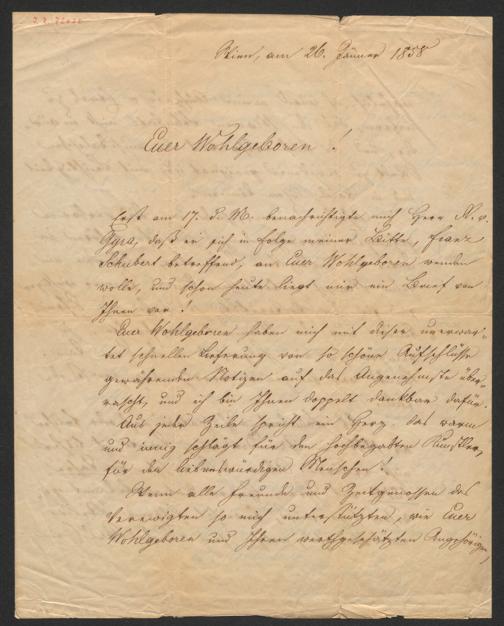 Wien, am 26. Jänner 1858
Euer Wohlgeboren!
Erst am 17. d. M. benachrichtigte mich Herr A. v.
daß er sich in Folge meiner Bitte, Franz
Schubert betreffend, an Euer Wohlgeboren wenden
wolle, und schon heute liegt mir ein Brief von
Ihnen vor!
Euer Wohlgeboren haben mich mit dieser unerwar-
tet schnellen Lieferung von so schöne Aufschlüsse
gewährenden Notizen auf das Angenehmste über-
rascht, und ich bin Ihnen doppelt dankbar dafür.
Aus jeder Zeile spricht ein Herz, das warm
und innig schlägt für den hochbegabten Künstler,
für den liebenswürdigen Menschen!
Wenn alle Freunde und Zeitgenossen des
Verewigten so mich unterstützten, wie Euer
Wohlgeboren und Ihren werthgeschätzten Angehörigen,